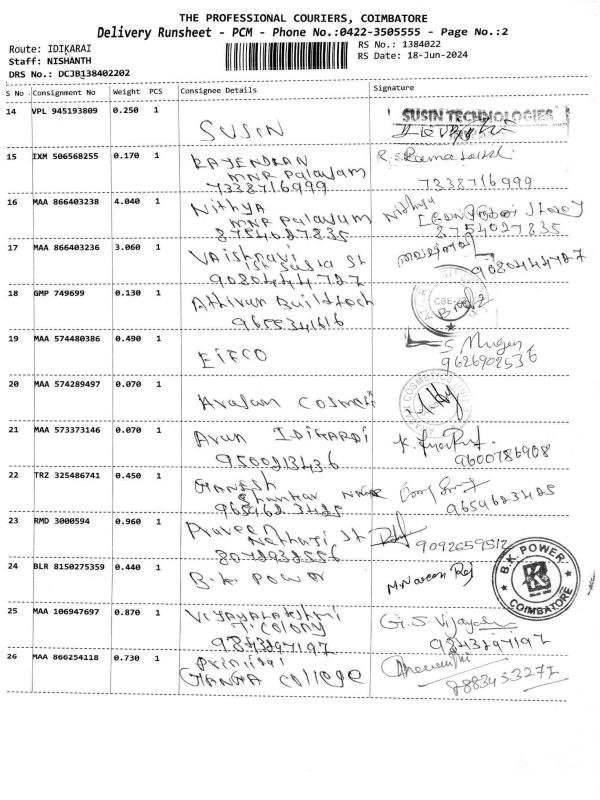 THE PROFESSIONAL COURIERS, COIMBATORE
Delivery Runsheet - PCM - Phone No.:0422-3505555 - Page No.:2
Route: IDIKARAI
RS No.: 1384022
Staff: NISHANTH
RS Date: 18-Jun-2024
DRS No.: DCJB138402202
S No Consignment No Weight PCS Consignee Details Signature
14 VPL 945193809 0.250 1 SUSIN
SUSIN TECHNOLOGIES
15 IXM 506568255 0.170 1 RAJENDRAN
MNR Palayam
7338716999 7338716999
16 MAA 866403238 4.040 1 Nithya Nithya
MNR Palayam
8754027835 8754027835
17 MAA 866403236 3.060 1 VAishnavi
9080444727 9080444727
18 GMP 749699 0.130 1 Athivan Buildtech
9655341616
19 MAA 574480386 0.490 1 EIFCO S. Mugen
9626902536
20 MAA 574289497 0.070 1
21 MAA 573373146 0.070 1 Arun IDIKARAI
9500213436 9600786908
22 TRZ 325486741 0.450 1 GANESH
Shankar NAGAR
9654623425 9654623425
23 RMD 3000594 0.960 1 Praveen
Nethaji St
8072932556 9092659512
24 BLR 8150275359 0.440 1 B.K Power M.Naveen Raj
B.K. POWER
COIMBATORE
25 MAA 106947697 0.870 1 VIJAYALAKSHMI G.S Vijayal
T COLONY
9843297197 9843297197
26 MAA 866254118 0.730 1 Principal
GANGA College 9883453272